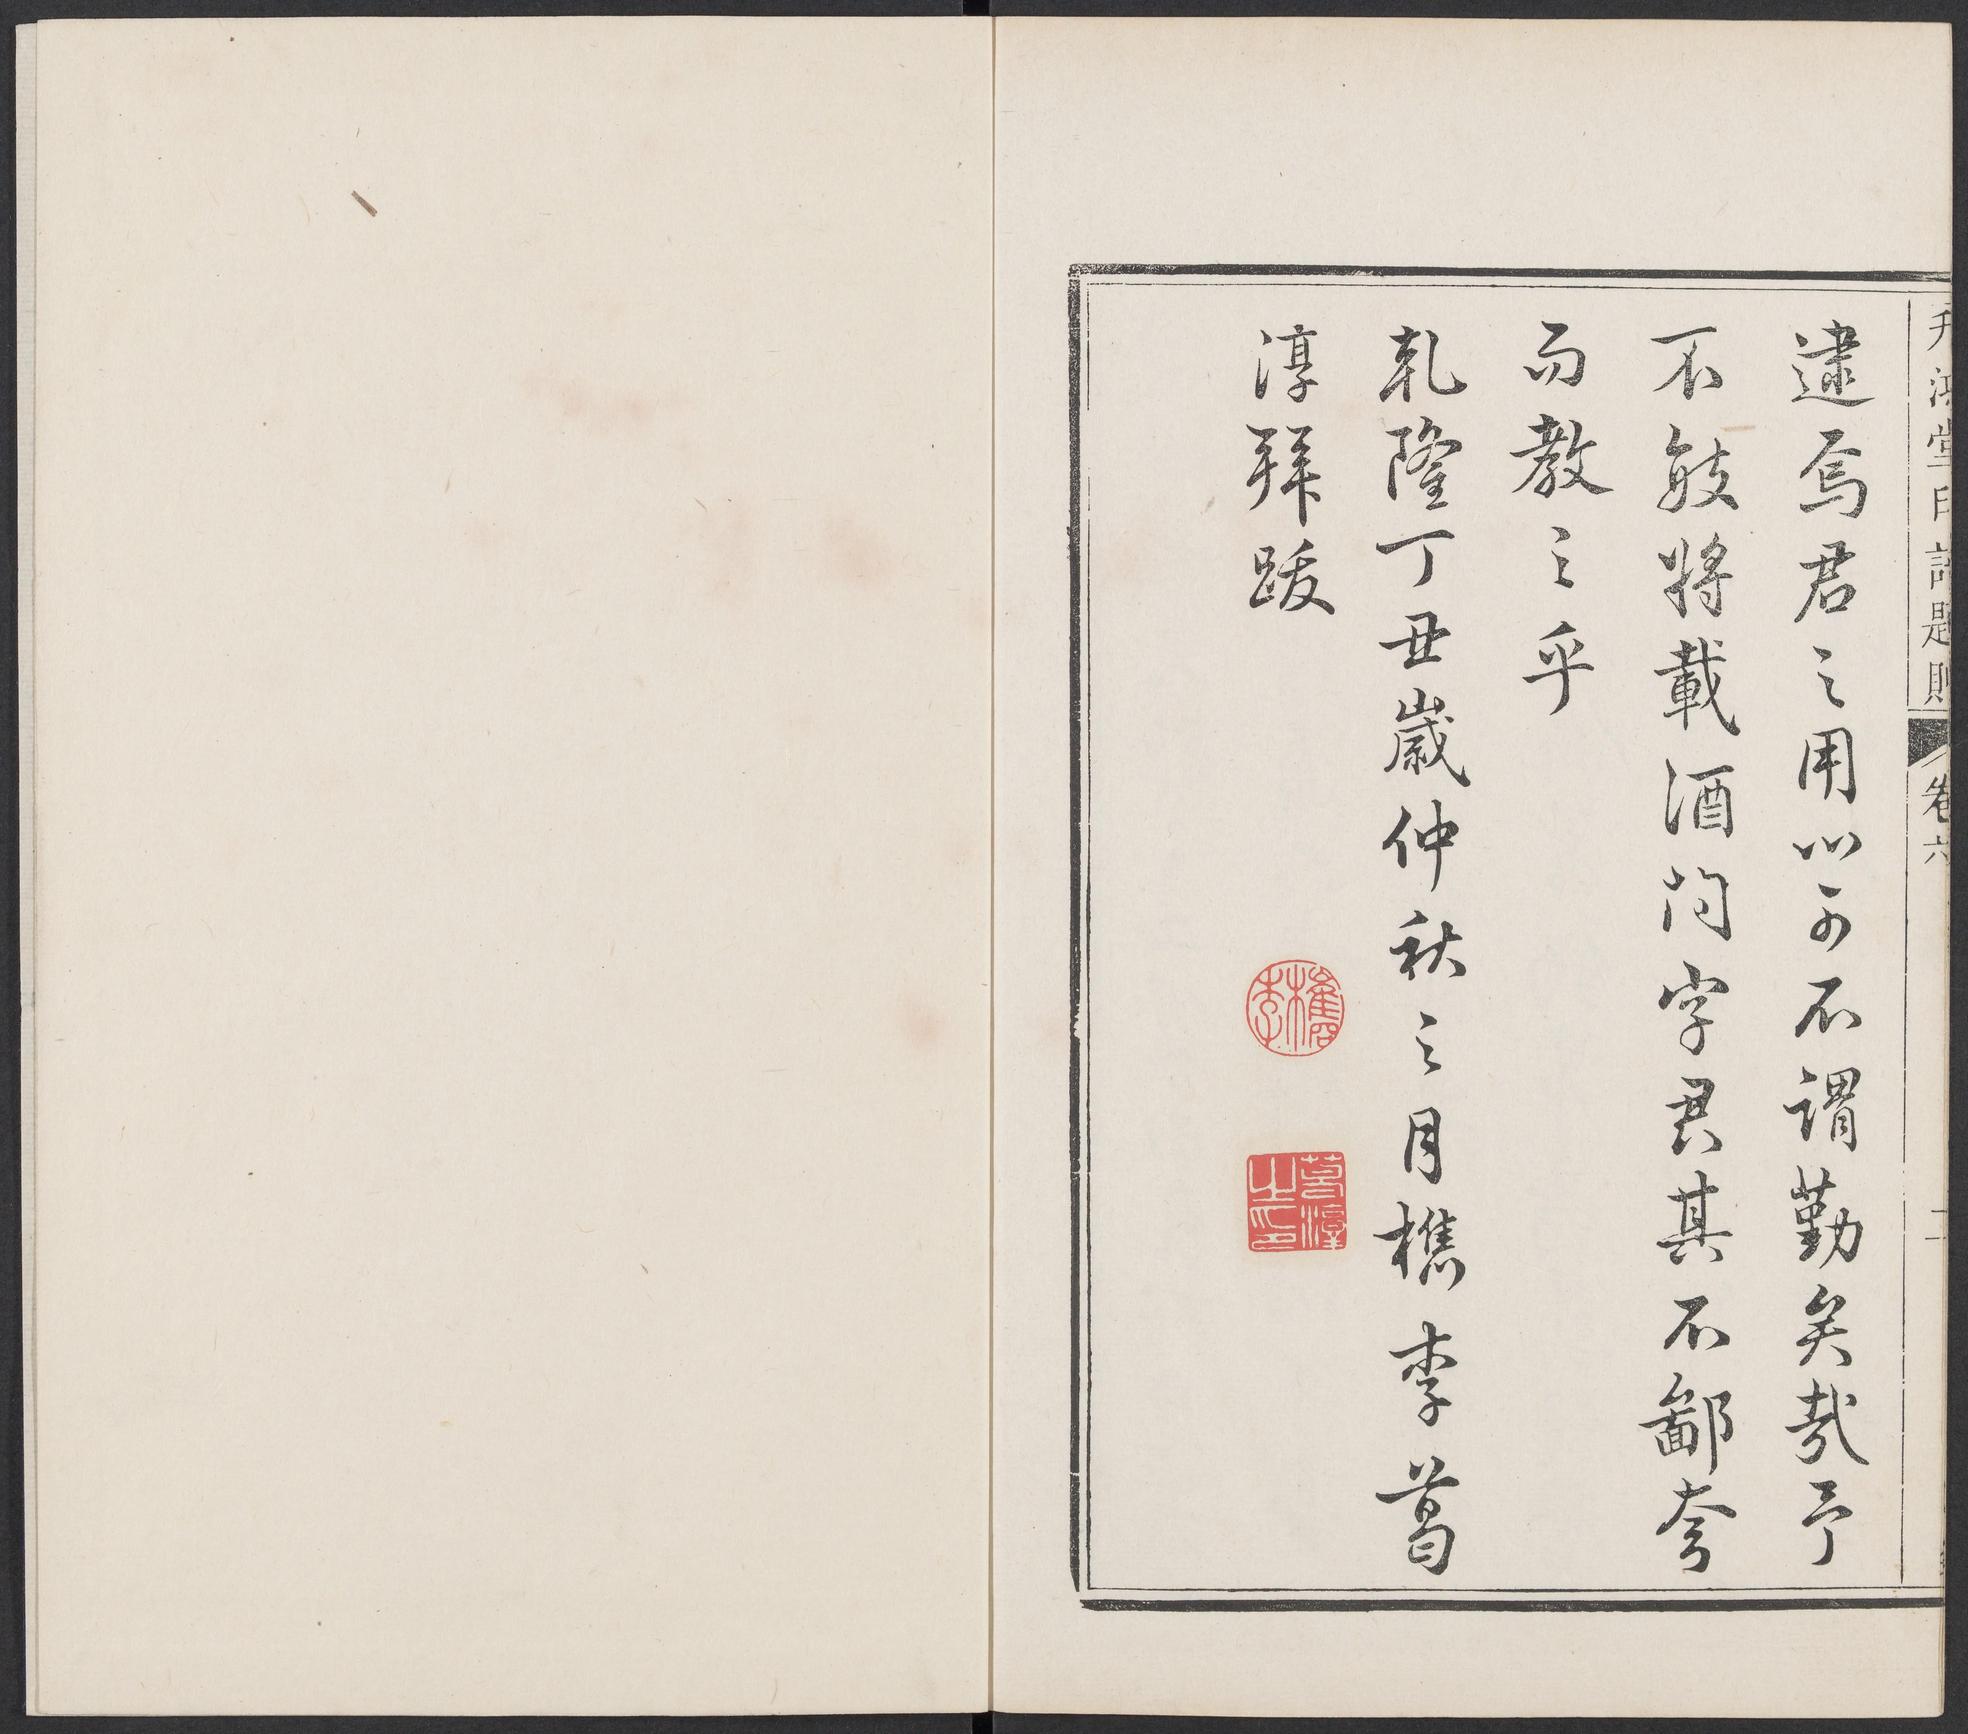 飛鴻堂印譜題
卷六
二
逮焉君之用心可不謂勤矣哉予
不敏將載酒問字君其不鄙夸
而教之乎
乾隆丁丑歲仲秋之月檇李葛
淳拜跋
檇李
葛淳之印